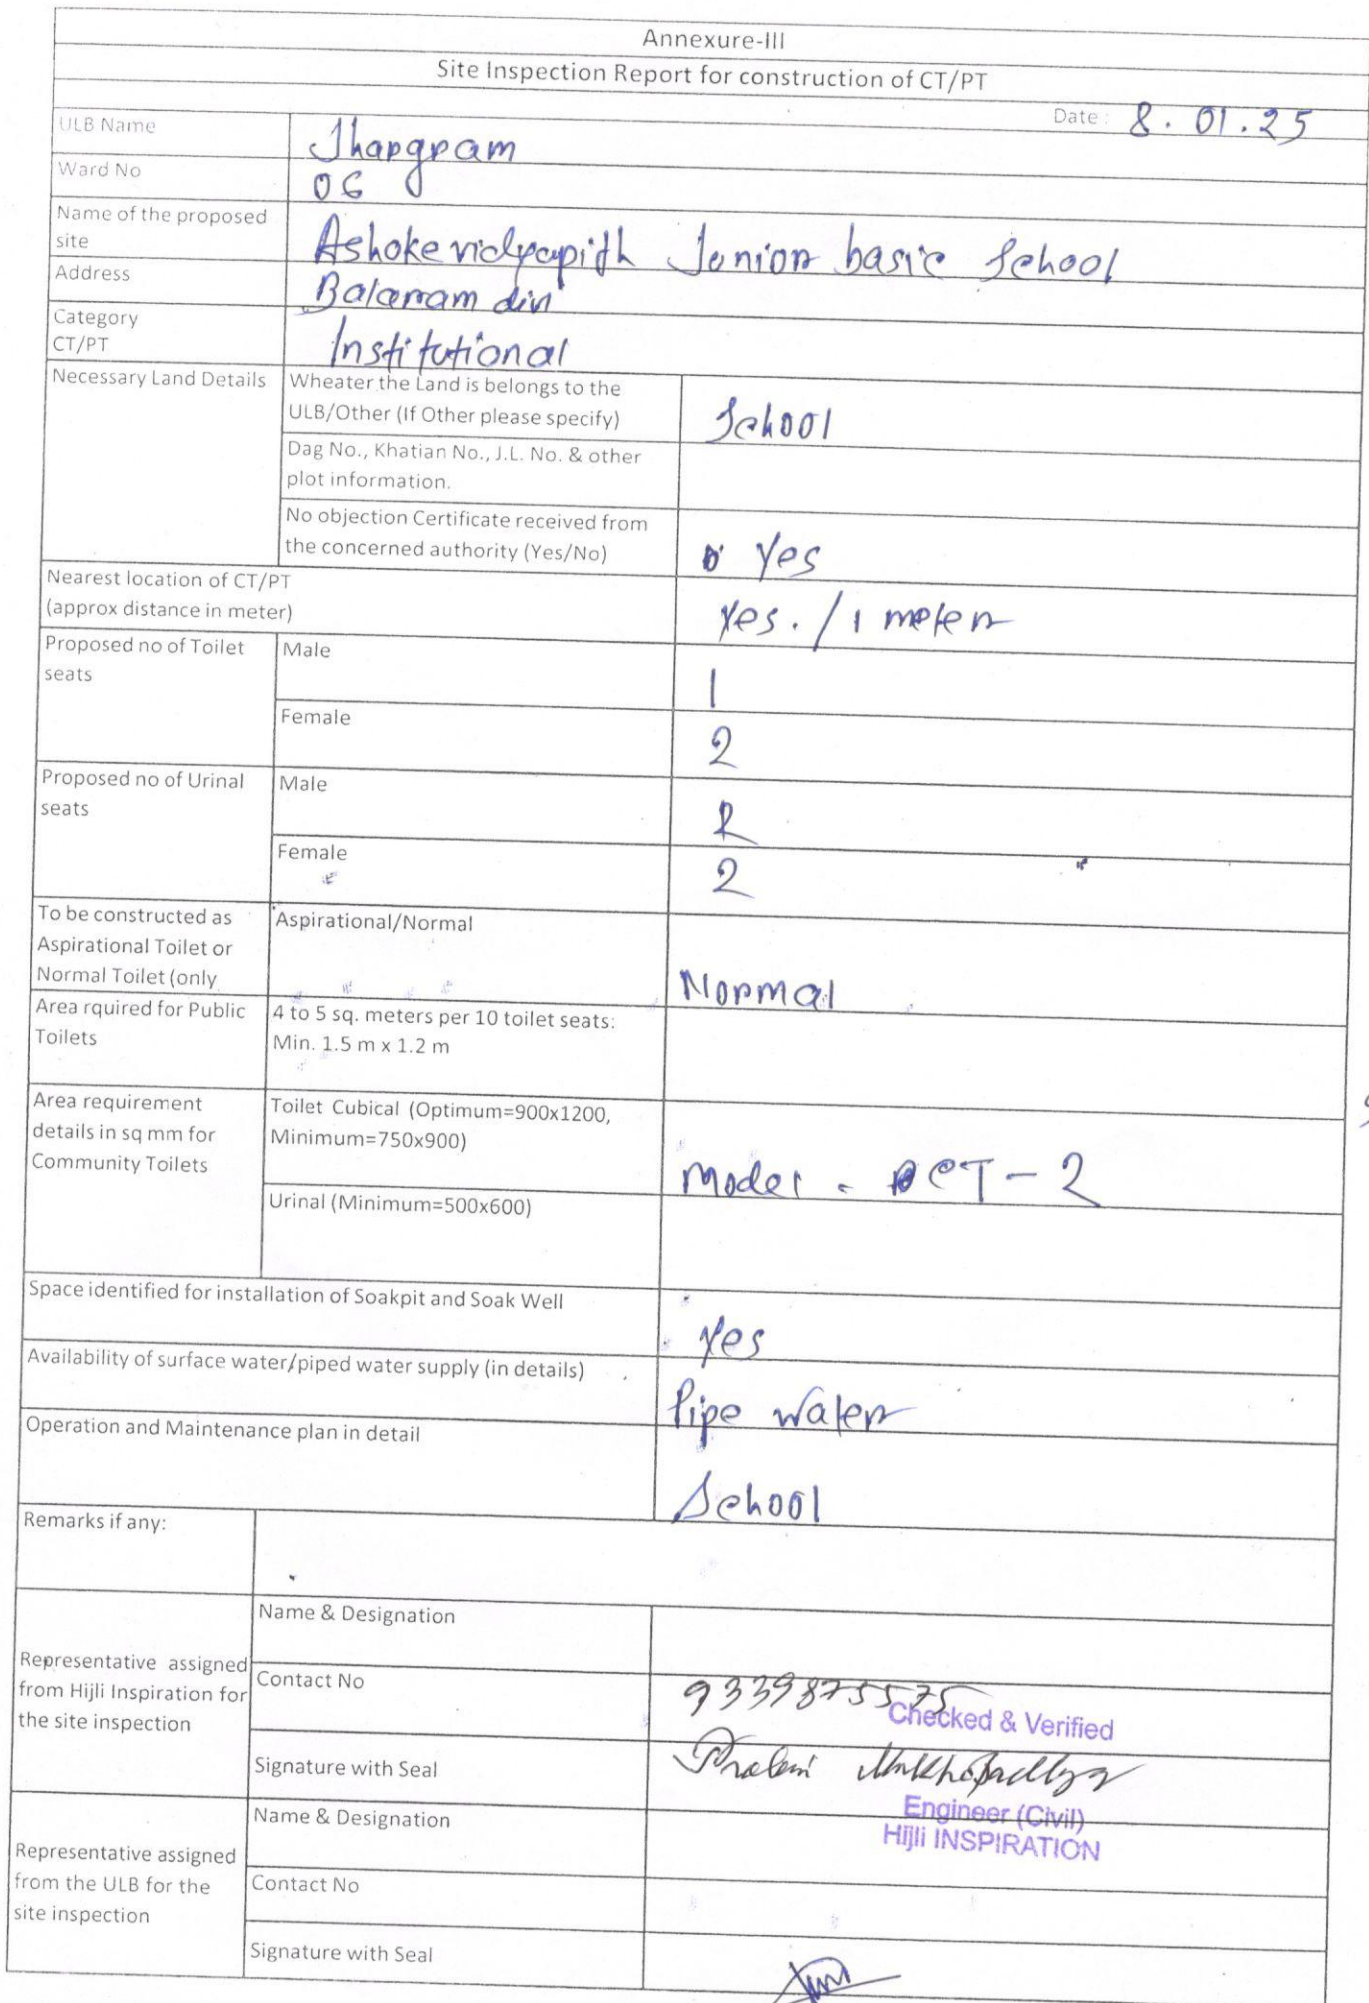 Annexure-III
Site Inspection Report for construction of CT/PT
Date : 8.01.25
ULB Name Jhargram
Ward No 06
Name of the proposed
site
Ashoke vidyapith Junior basic School
Address Balaram din
Category
CT/PT
Institutional
Necessary Land Details
Wheater the Land is belongs to the
ULB/Other (If Other please specify)
School
Dag No., Khatian No., J.L. No. & other
plot information.
No objection Certificate received from
the concerned authority (Yes/No)
Yes
Nearest location of CT/PT
(approx distance in meter)
Yes. / 1 meter
Proposed no of Toilet
seats
Male 1
Female 2
Proposed no of Urinal
seats
Male 2
Female 2
To be constructed as
Aspirational Toilet or
Normal Toilet (only
Aspirational/Normal
Normal
Area rquired for Public
Toilets
4 to 5 sq. meters per 10 toilet seats:
Min. 1.5 m x 1.2 m
Area requirement
details in sq mm for
Community Toilets
Toilet Cubical (Optimum=900x1200,
Minimum=750x900)
Model - CT-2
Urinal (Minimum=500x600)
Space identified for installation of Soakpit and Soak Well
Yes
Availability of surface water/piped water supply (in details)
Pipe water
Operation and Maintenance plan in detail
School
Remarks if any:
Representative assigned
from Hijli Inspiration for
the site inspection
Name & Designation
Contact No
9339875575
Checked & Verified
Signature with Seal
Mukhopadhya
Engineer (Civil)
Hijli INSPIRATION
Representative assigned
from the ULB for the
site inspection
Name & Designation
Contact No
Signature with Seal